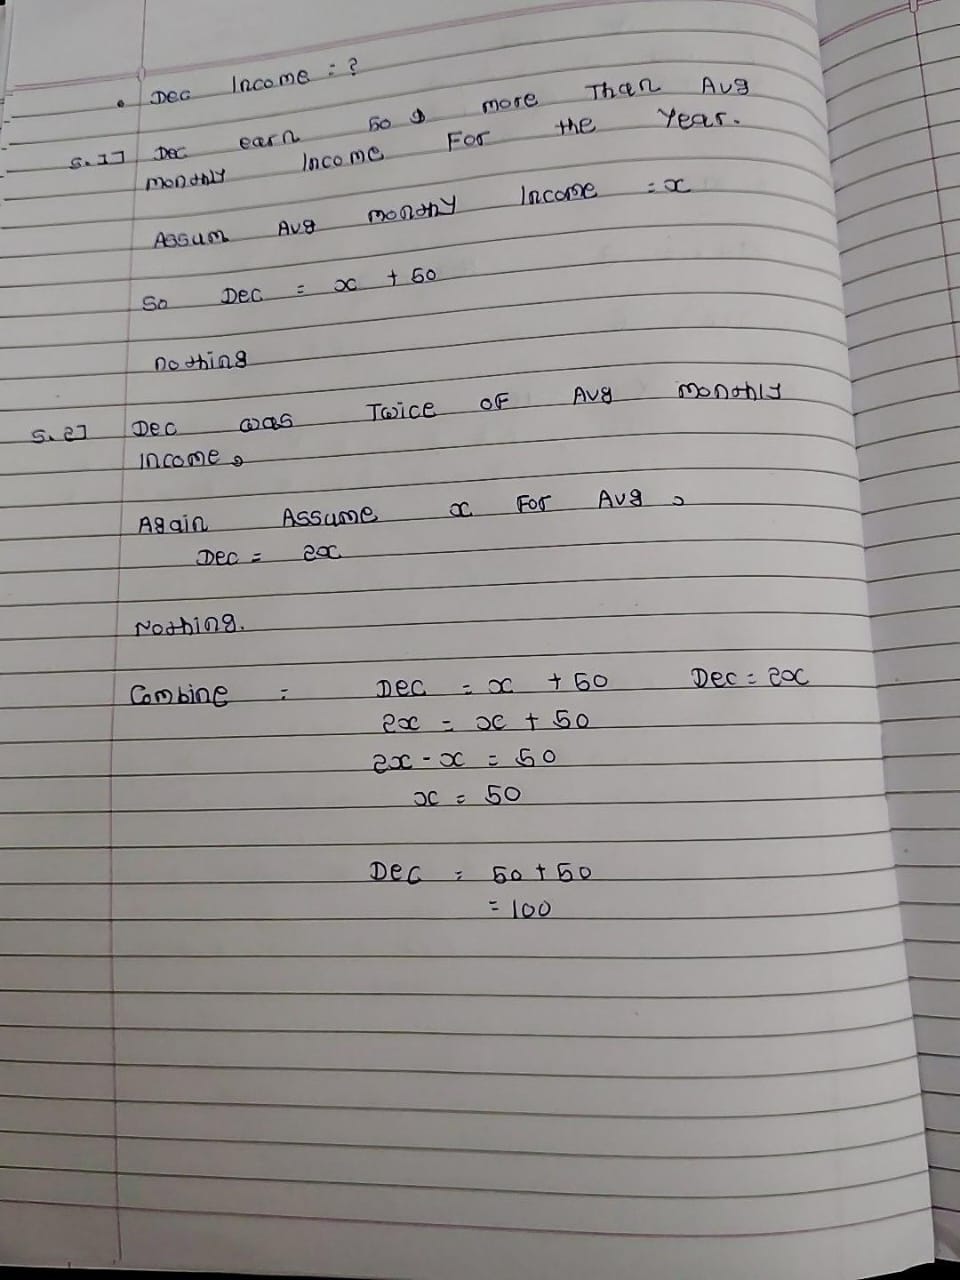 • Dec Income = ?
S.1] Dec earn 50 $ more Than Avg
monthly Income For the Year.
Assum Avg monthy Income = x
So Dec = x + 50
Nothing
S.2] Dec was Twice OF Avg monthly
Income.
Again Assume x For Avg,
Dec = 2x
Nothing.
Combine : Dec = x + 50 Dec = 2x
2x = x + 50
2x - x = 50
x = 50
Dec = 50 + 50
= 100